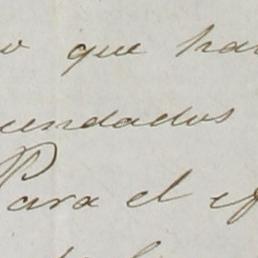 o que ha
undados
Para el ef